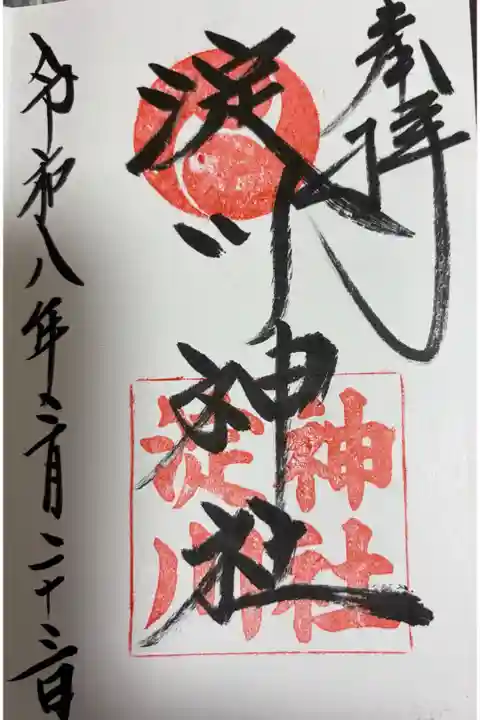 奉拝
淀川神社
神社
淀川
令和八年二月二十三日